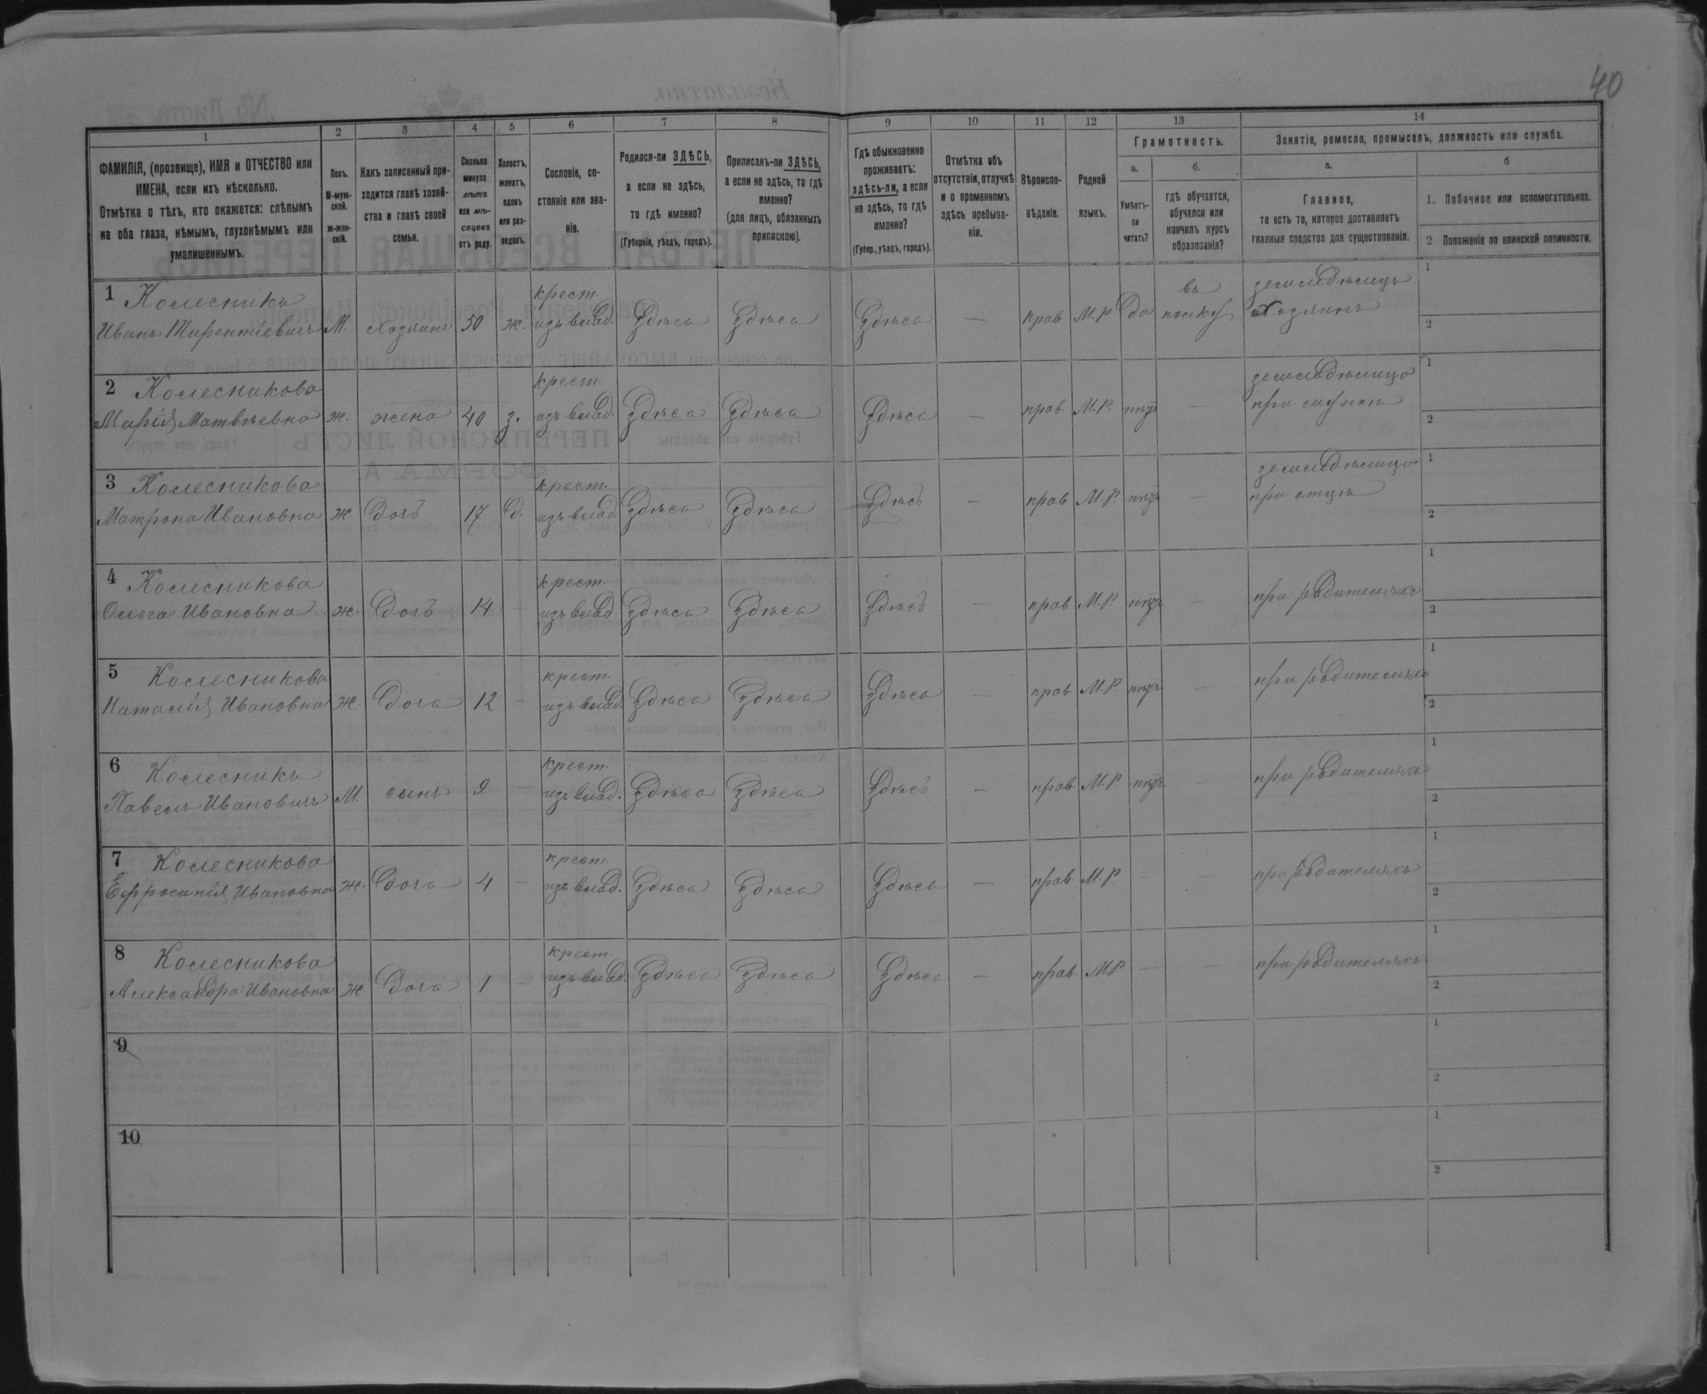 40
1 2 3 4 5 6 7 8 9 10 11 12 13 14
ФАМИЛІЯ, (прозвище), ИМЯ и ОТЧЕСТВО или
ИМЕНА, если ихъ нѣсколько.
Отмѣтка о тѣхъ, кто окажется: слѣпымъ
на оба глаза, нѣмымъ, глухонѣмымъ или
умалишеннымъ.
Полъ.
М-муж-
ской.
Ж-жен-
скій.
Какъ записанный при-
ходится главѣ хозяй-
ства и главѣ своей
семьи.
Сколько
минуло
лѣтъ
или мѣ-
сяцевъ
отъ роду.
Холостъ,
женатъ,
вдовъ
или раз-
веденъ.
Сословіе, со-
стояніе или зва-
ніе.
Родился-ли ЗДѢСЬ,
а если не здѣсь,
то гдѣ именно?
(Губернія, уѣздъ, городъ).
Приписанъ-ли ЗДѢСЬ,
а если не здѣсь, то гдѣ
именно?
(для лицъ, обязанныхъ
припискою).
Гдѣ обыкновенно
проживаетъ:
здѣсь-ли, а если
не здѣсь, то гдѣ
именно?
(Губер., уѣздъ, городъ).
Отмѣтка объ
отсутствіи, отлучкѣ
и о временномъ
здѣсь пребыва-
ніи.
Вѣроиспо-
вѣданіе.
Родной
языкъ.
Грамотность.
а.
Умѣетъ-
ли
читать?
б.
гдѣ обучается,
обучался или
кончилъ курсъ
образованія?
Занятіе, ремесло, промыселъ, должность или служба.
а.
Главное,
то есть то, которое доставляетъ
главныя средства для существованія.
б
1. Побочное или вспомогательное.
2 Положеніе по воинской повинности.
1 Колесникъ крест. въ земледѣлецъ 1
Иванъ Тирентіевичъ М. хозяинъ 50 ж. изъ влад. Здѣсь Здѣсь Здѣсь — прав М.Р. да полку хозяинъ 2
2 Колесникова крест. земледѣлица 1
Марія Матвѣевна ж. жена 40 з. изъ влад. Здѣсь Здѣсь Здѣсь — прав. М.Р. нѣтъ — при мужѣ 2
3 Колесникова крест. земледѣлица 1
Матрона Ивановна ж дочь 17 д. изъ влад. Здѣсь Здѣсь Здѣсь — прав М.Р. нѣтъ — при отцѣ 2
4 Колесникова крест. 1
Ольга Ивановна ж. дочь 14 — изъ влад. Здѣсь Здѣсь Здѣсь — прав М.Р. нѣтъ — при родителяхъ 2
5 Колесникова крест. 1
Наталія Ивановна ж. дочь 12 — изъ влад. Здѣсь Здѣсь Здѣсь — прав. М.Р. нѣтъ — при родителяхъ 2
6 Колесникъ крест. 1
Павелъ Ивановичъ М. сынъ 9 — изъ влад. Здѣсь Здѣсь Здѣсь — прав М.Р нѣтъ — при родителяхъ 2
7 Колесникова крест. 1
Ефросинія Ивановна ж. дочь 4 — изъ влад. Здѣсь Здѣсь Здѣсь — прав М.Р — — при родителяхъ 2
8 Колесникова крест. 1
Александра Ивановна ж дочь 1 — изъ влад. Здѣсь Здѣсь Здѣсь — прав. М.Р — — при родителяхъ 2
9 1
2
10 1
2